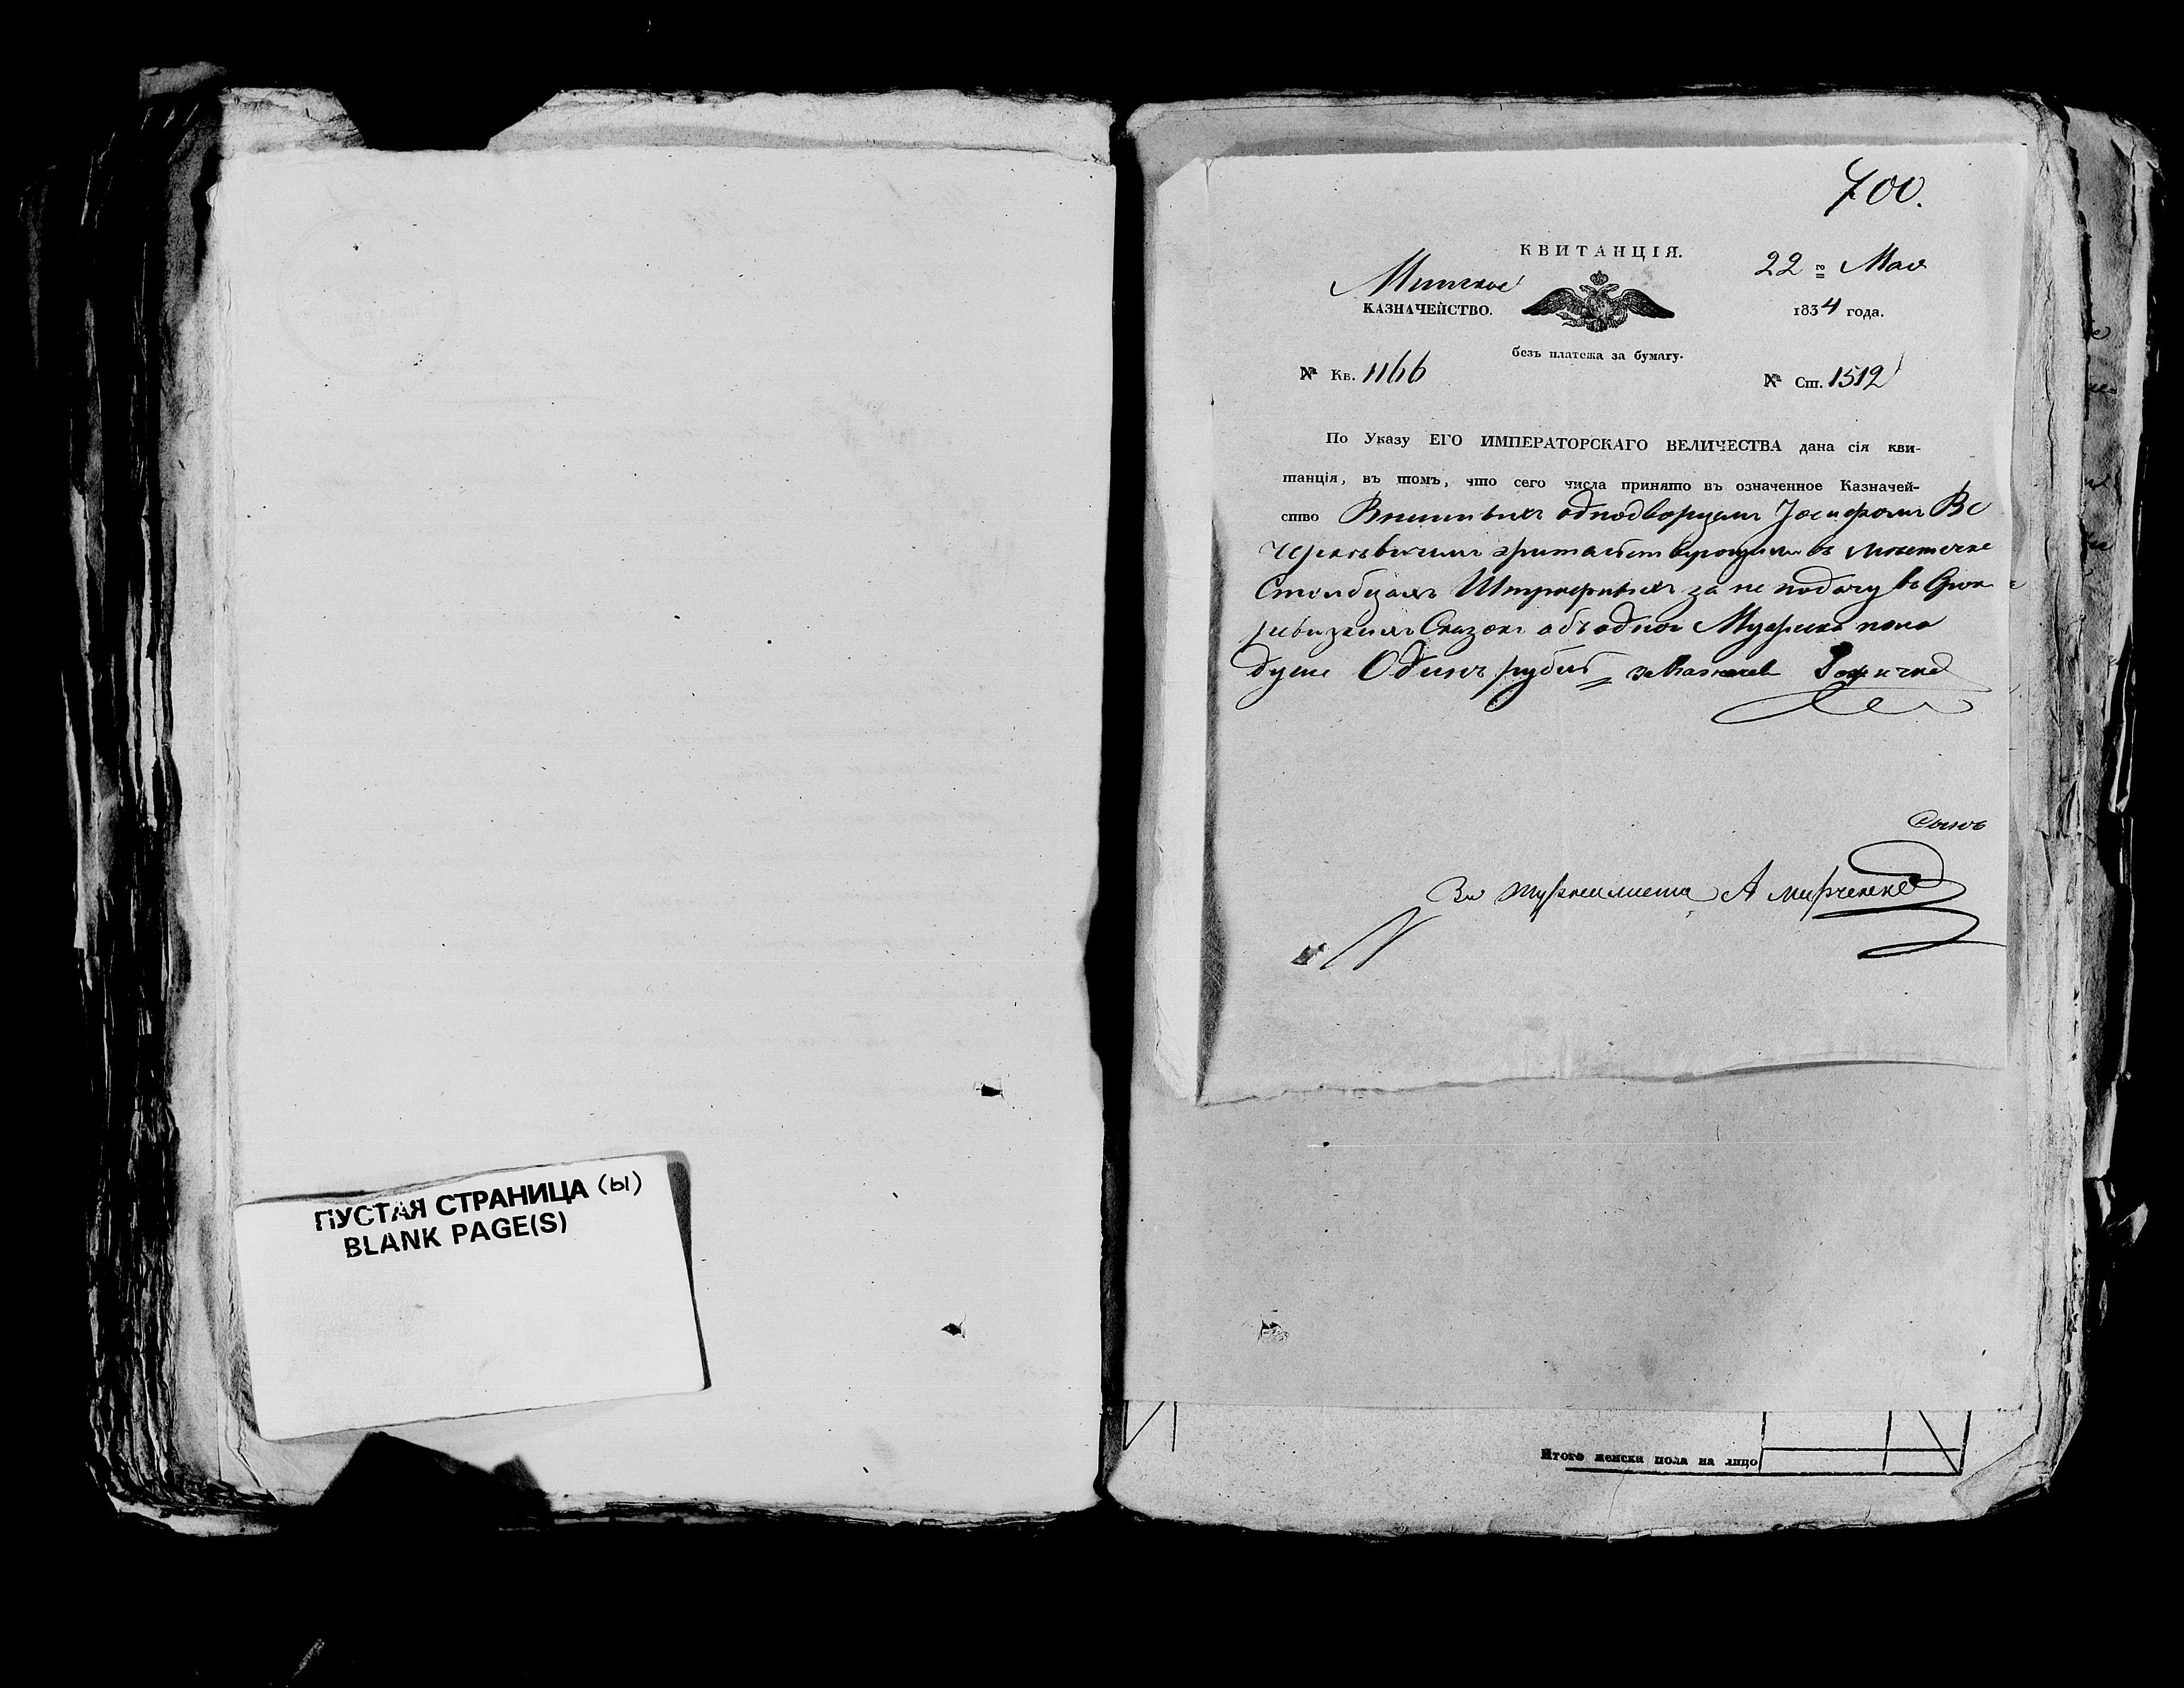 ПУСТАЯ СТРАНИЦА (ы)
BLANK PAGE(S)
700.
КВИТАНЦІЯ.
Минское
КАЗНАЧЕЙСТВО.
22 го Мая
1834 года.
безъ платежа за бумагу.
№ Кв. 1166
№ Ст. 1512
По Указу ЕГО ИМПЕРАТОРСКАГО ВЕЛИЧЕСТВА дана сія кви-
танція, въ томъ, что сего числа принято въ означенное Казначей-
ство однодворцемъ Іосифомъ
въ местечке
Столбцахъ Штрафныхъ за не подачу въ Срок
ревизскихъ Сказокъ объ одной Мужеска пола
душе Одинъ рубль
За журналиста А
Итого женска пола на лицо